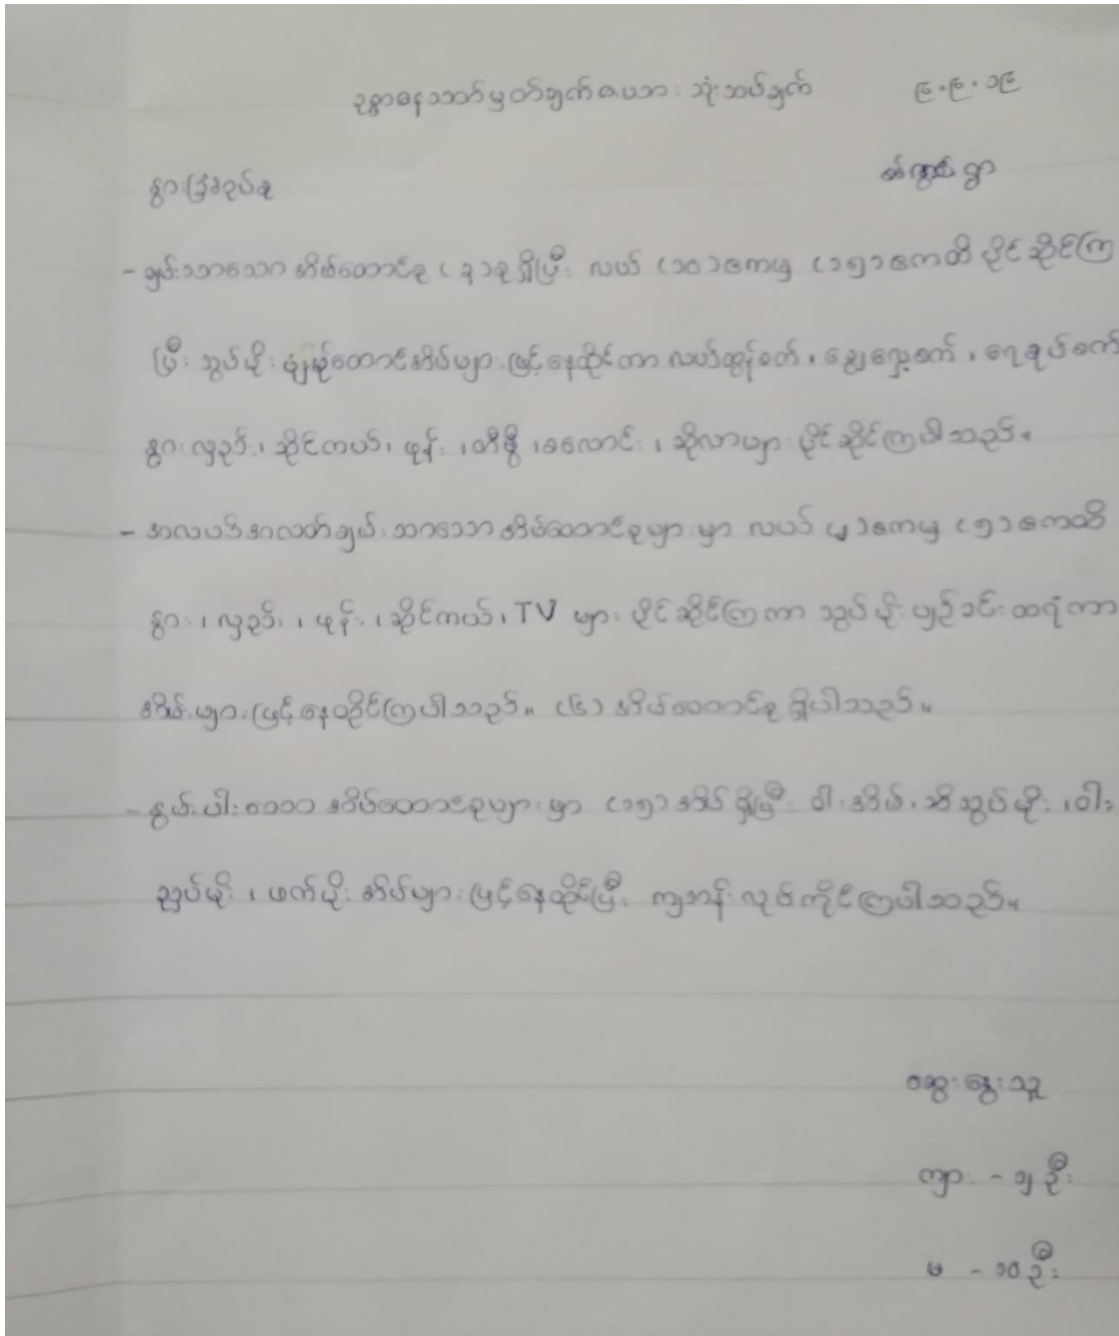 ဥစ္စာဓနသတ်မှတ်ချက်ဇယား သုံးသပ်ချက် ၉.၉.၁၉
နွားခြံအုပ်စု ရွာ
- ချမ်းသာသော အိမ်ထောင်စု ( ၃ ) စု ရှိပြီး လယ် (၁၀) ဧကမှ (၁၅) ဧကထိ ပိုင်ဆိုင်ကြ
ပြီး သွပ်မိုး ပျဉ်ထောင်အိမ်များ ဖြင့်နေထိုင်ကာ လယ်ထွန်စက်၊ ချွေလှေ့စက်၊ ရေစုပ်စက်
နွား လှည်း၊ ဆိုင်ကယ်၊ ဖုန်း၊ တီဗွီ၊ စလောင်း၊ ဆိုလာများ ပိုင်ဆိုင်ကြပါသည်။
- အလယ်အလတ်ချမ်းသာသော အိမ်ထောင်စုများမှာ လယ် ဧကမှ (၅) ဧကထိ
နွား၊ လှည်း၊ ဖုန်း၊ ဆိုင်ကယ်၊ TV များ ပိုင်ဆိုင်ကြကာ သွပ်မိုး ပျဉ်ခင်း ထရံကာ
အိမ်များဖြင့် နေထိုင်ကြပါသည်။ (၆) အိမ်ထောင်စု ရှိပါသည်။
- နွမ်းပါးသော အိမ်ထောင်စုများမှာ (၁၅) အိမ် ရှိပြီး ဝါးအိမ်၊ သွပ်မိုး၊ ဝါး
ညှပ်မိုး၊ ဖက်မိုး အိမ်များဖြင့်နေထိုင်ပြီး ကျဘန်းလုပ်ကိုင်ကြပါသည်။
ဆွေးနွေးသူ
ကျား - ၂ ဦး
မ - ၁၀ ဦး